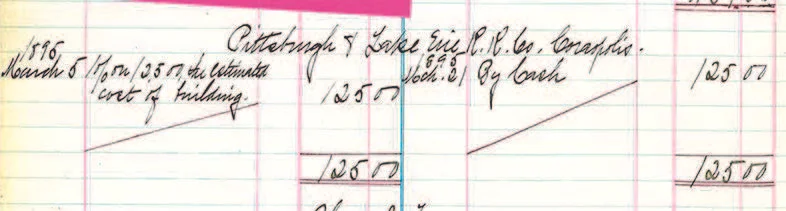 Pittsburgh & Lake Erie R.R. Co. Coraopolis.
1895
March 5 1% on 12,500, the estimated
cost of building. 125 00
1895
Mch. 21 By Cash 125 00
125 00 125 00